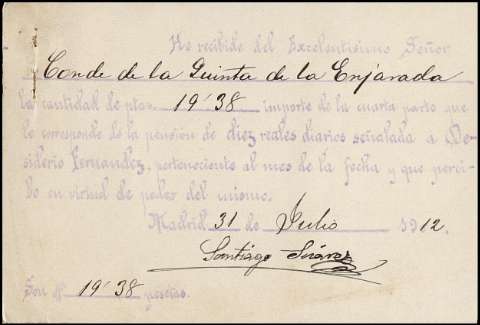 He recibido del Excelentísimo Señor
Conde de la Quinta de la Enjarada
la cantidad de ptas. 19'38 importe de la cuarta parte que
le corresponde de la pensión de diez reales diarios señalada a De-
siderio Fernandez, perteneciente al mes de la fecha y que perci-
bo en virtud de poder del mismo.
Madrid 31 de Julio 1912.
Santiago Suárez
Son # 19'38 pesetas.